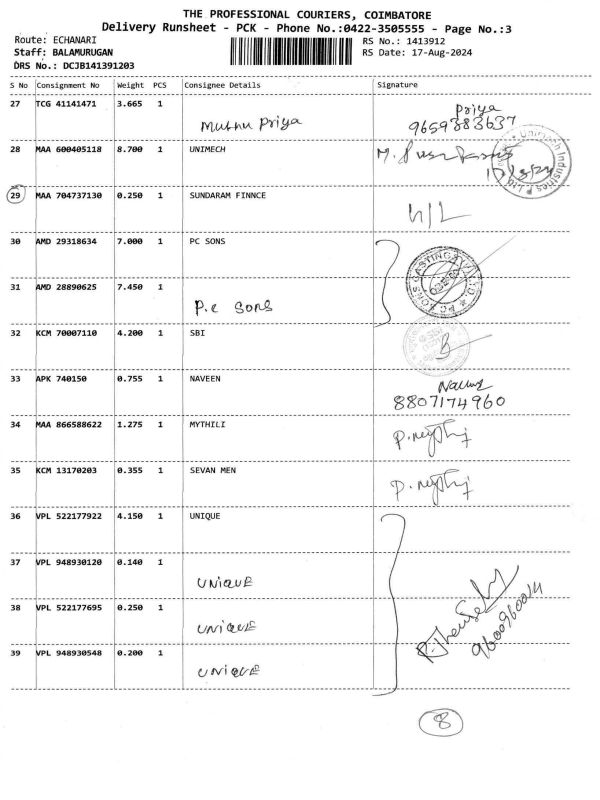 THE PROFESSIONAL COURIERS, COIMBATORE
Delivery Runsheet - PCK - Phone No.:0422-3505555 - Page No.:3
Route: ECHANARI RS No.: 1413912
Staff: BALAMURUGAN RS Date: 17-Aug-2024
DRS No.: DCJB141391203
S No Consignment No Weight PCS Consignee Details Signature
27 TCG 41141471 3.665 1 Priya
Muthu Priya 9659383637
28 MAA 600405118 8.700 1 UNIMECH
29 MAA 704737130 0.250 1 SUNDARAM FINNCE
30 AMD 29318634 7.000 1 PC SONS
31 AMD 28890625 7.450 1
P.c sons
32 KCM 70007110 4.200 1 SBI
33 APK 740150 0.755 1 NAVEEN
8807174960
34 MAA 866588622 1.275 1 MYTHILI
35 KCM 13170203 0.355 1 SEVAN MEN
36 VPL 522177922 4.150 1 UNIQUE
37 VPL 948930120 0.140 1
UNIQUE
38 VPL 522177695 0.250 1
UNIQUE
39 VPL 948930548 0.200 1
UNIQUE
8